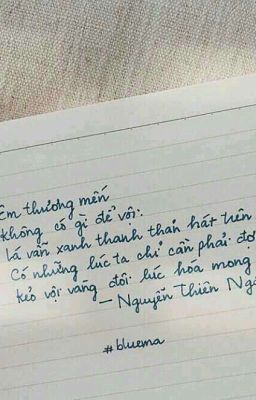 Em thương mến
không có gì để vội.
lá vẫn xanh thanh thản hát trên
Có những lúc ta chỉ cần phải đợ
kẻo vội vàng đôi lúc hóa mong
— Nguyễn Thiên Ng
#bluema